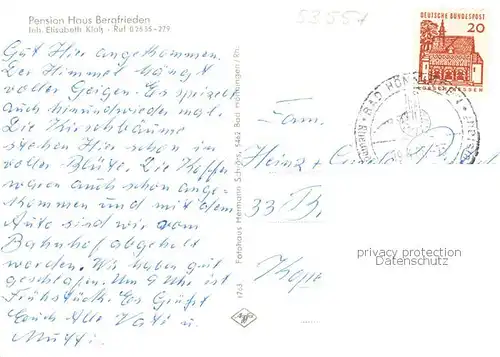 Pension Haus Bergfrieden
Inh. Elisabeth Kloß - Ruf 02635-279
53557
DEUTSCHE BUNDESPOST
20
LORSCH/HESSEN
BAD HÖNNINGEN
Gut Hier angekommen.
Der Himmel hängt
voller Geigen. Es
auch hin und wieder mal.
Die Kirschbäume
stehen Hier schon in
voller Blüte. Die Koffer
waren auch schon ange-
kommen und mit dem
Auto sind wir vom
Bahnhof abgeholt
worden. Wir haben gut
geschlafen. Um 9 Uhr ist
Frühstück. Es Grüßt
Euch Alle Vati u.
Mutti.
Fotohaus Hermann 5462 Bad Hönningen/Rh.
Fam.
Heinz +
33
privacy protection
AKPool.de